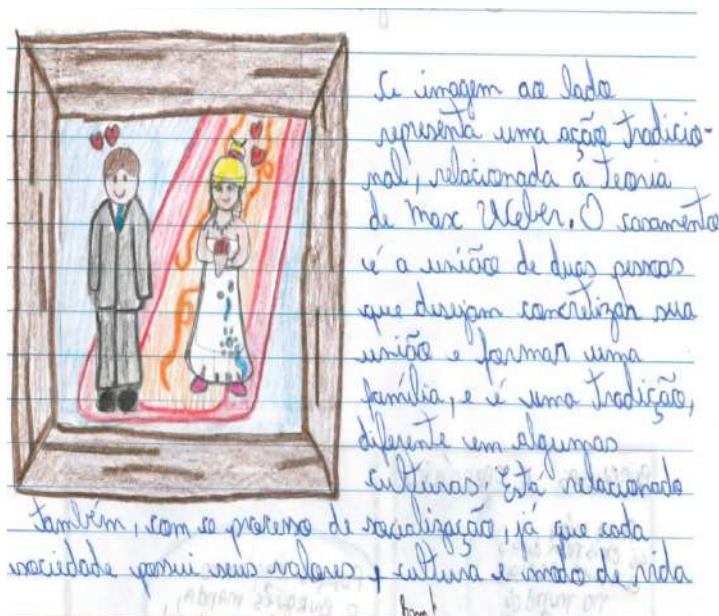 A imagem ao lado
representa uma ação tradicio-
nal, relacionada à teoria
de Max Weber. O casamento
é a união de duas pessoas
que desejam concretizar sua
união e formar uma
família, e é uma tradição,
diferente em algumas
culturas. Está relacionado
também, com o processo de socialização, já que cada
sociedade possui seus valores, cultura e modo de vida